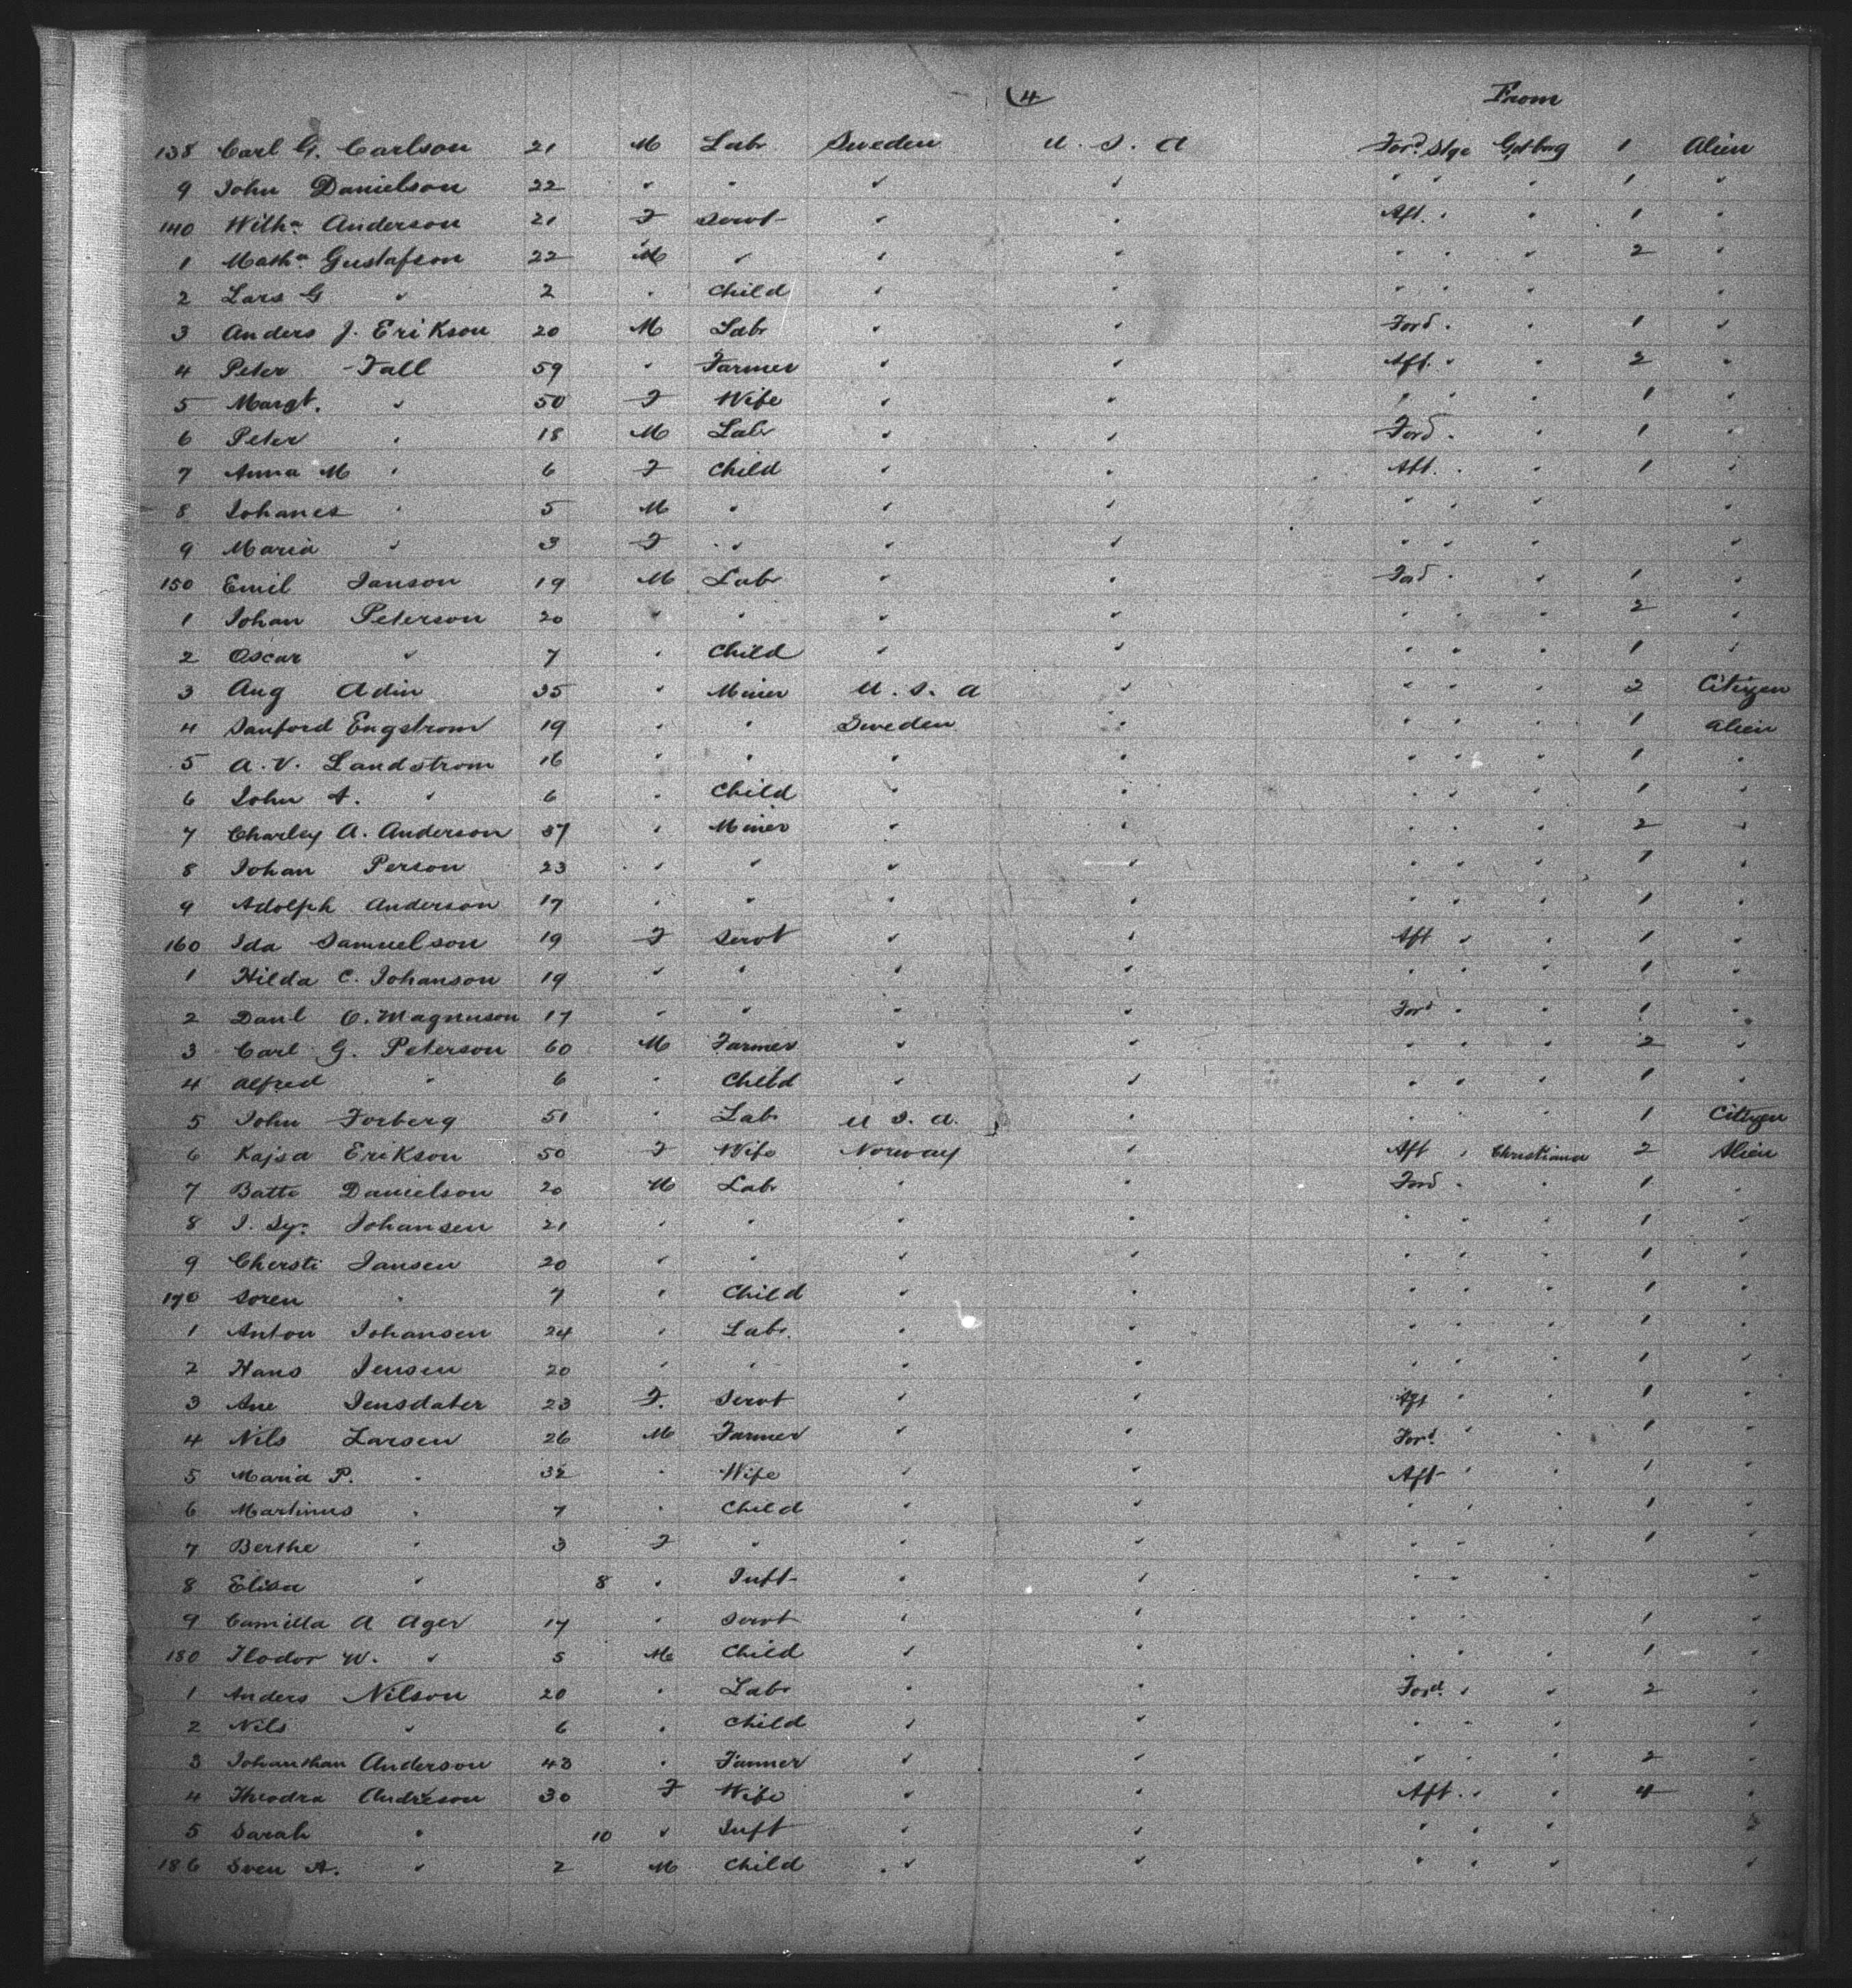 4 From
138 Carl G. Carlson 21 M Labr Sweden U.S.A Ford Stge Gotbug 1 Alien
9 John Danielson 22 " " " " " " " 1 "
140 Withª Anderson 21 F Servt " " Aft. " " 1 "
1 Mathª Gustafson 22 M " " " " " " 2 "
2 Lars G " 2 " Child " " " " " "
3 Anders J. Erikson 20 M Labr " " Ford " " 1 "
4 Peter Fall 59 " Farmer " " Aft. " " 2 "
5 Margt. " 50 F Wife " " " " " 1 "
6 Peter " 18 M Labr " " Ford " " 1 "
7 Anna M " 6 F Child " " Aft. " " 1 "
8 Johanes " 5 M " " " " " " "
9 Maria " 3 F " " " " " " "
150 Emil Janson 19 M Labr " " Ford " " 1 "
1 Johan Peterson 20 " " " " " " " 2 "
2 Oscar " 7 " Child " " " " " 1 "
3 Aug Adin 35 " Miner U.S.A " " " " 2 Citizen
4 Sanford Engstrom 19 " " Sweden " " " " 1 Alien
5 A.V. Landstrom 16 " " " " " " " 1 "
6 John A. " 6 " Child " " " " " 1 "
7 Charley A. Anderson 37 " Miner " " " " " 2 "
8 Johan Person 23 " " " " " " " 1 "
9 Adolph Anderson 17 " " " " " " " 1 "
160 Ida Samuelson 19 F Servt " " Aft " " 1 "
1 Hilda C. Johanson 19 " " " " " " " 1 "
2 Danl O. Magnuson 17 " " " " Ford " " 1 "
3 Carl G. Peterson 60 M Farmer " " " " " 2 "
4 Alfred " 6 " Child " " " " " 1 "
5 John Forberg 51 " Labr U.S.A. " " " " 1 Citizen
6 Kajsa Erikson 50 F Wife Norway " Aft " Christiana 2 Alien
7 Batte Danielson 20 M Labr " " Ford " " 1 "
8 J. Johansen 21 " " " " " " " 1 "
9 Chersti Jansen 20 " " " " " " " 1 "
170 Soren " 7 " Child " " " " " 1 "
1 Anton Johansen 24 " Labr. " " " " " 1 "
2 Hans Jensen 20 " " " " " " " 1 "
3 Ane Jensdater 23 F. Servt " " Aft " " 1 "
4 Nils Larsen 26 M Farmer " " Ford " " 1 "
5 Maria P. " 32 " Wife " " Aft " " 1 "
6 Martinus " 7 " Child " " " " " 1 "
7 Berthe " 3 F " " " " " " 1 "
8 Elisa " 8 " Inft " " " " " "
9 Camilla A Ager 17 " Servt " " " " " 1 "
180 Flodor W. " 5 M Child " " " " " 1 "
1 Anders Nilson 20 " Labr " " Ford " " 2 "
2 Nils " 6 " Child " " " " " "
3 Johanthan Anderson 43 " Farmer " " " " " 2 "
4 Theodra Andreson 30 F Wife " " Aft. " " 4 "
5 Sarah " 10 " Inft " " " " " "
186 Sven A. " 2 M Child " " " " " "